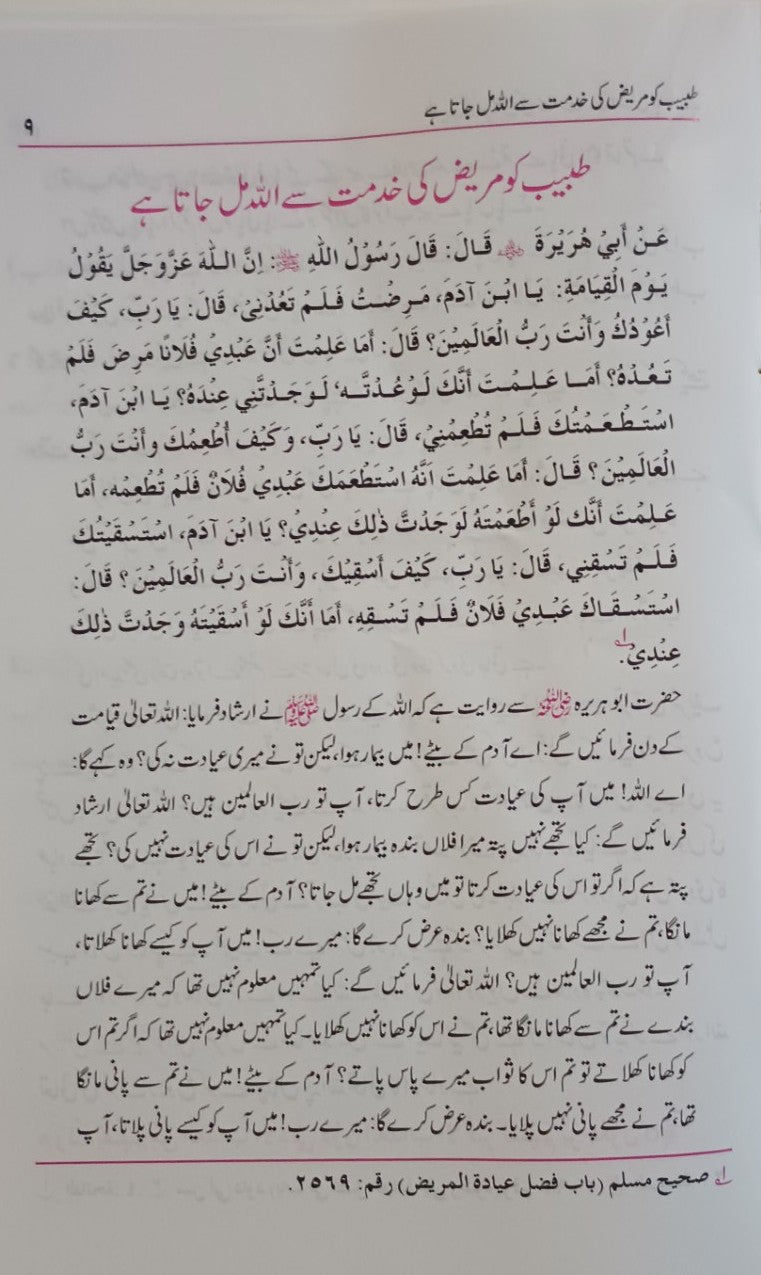 طبیب کو مریض کی خدمت سے اللہ مل جاتا ہے
۹
طبیب کو مریض کی خدمت سے اللہ مل جاتا ہے
عَنْ أَبِيْ هُرَيْرَةَ ﷛ قَالَ: قَالَ رَسُوْلُ اللهِ ﷺ: إِنَّ اللهَ عَزَّوَجَلَّ يَقُوْلُ
يَوْمَ الْقِيَامَةِ: يَا ابْنَ آدَمَ، مَرِضْتُ فَلَمْ تَعُدْنِيْ، قَالَ: يَا رَبِّ، كَيْفَ
أَعُوْدُكُ وَأَنْتَ رَبُّ الْعَالَمِيْنَ؟ قَالَ: أَمَا عَلِمْتَ أَنَّ عَبْدِيْ فُلَانًا مَرِضَ فَلَمْ
تَعُدْهُ؟ أَمَا عَلِمْتَ أَنَّكَ لَوْ عُدْتَّهٗ لَوَجَدْتَّنِي عِنْدَهُ؟ يَا ابْنَ آدَمَ،
اسْتَطْعَمْتُكَ فَلَمْ تُطْعِمْنِيْ، قَالَ: يَا رَبِّ، وَكَيْفَ أُطْعِمُكَ وأَنْتَ رَبُّ
الْعَالَمِيْنَ؟ قَالَ: أَمَا عَلِمْتَ اَنَّهُ اسْتَطْعَمَكَ عَبْدِيْ فُلَانٌ فَلَمْ تُطْعِمْه، أَمَا
عَلِمْتَ أَنَّك لَوْ أَطْعَمْتَهُ لَوَجَدْتَّ ذٰلِكَ عِنْدِيْ؟ يَا ابْنَ آدَمَ، اسْتَسْقَيْتُكَ
فَلَمْ تَسْقِنِي، قَالَ: يَا رَبِّ، كَيْفَ أَسْقِيْكَ، وَأَنْتَ رَبُّ الْعَالَمِيْنَ؟ قَالَ:
اسْتَسْقَاكَ عَبْدِيْ فَلَانٌ فَلَمْ تَسْقِهِ، أَمَا أَنَّكَ لَوْ أَسْقَيْتَهُ وَجَدْتَّ ذٰلِكَ
عِنْدِيْ. لے
حضرت ابو ہریرہ رضی اللہ عنہ سے روایت ہے کہ اللہ کے رسول ﷺ نے ارشاد فرمایا: اللہ تعالیٰ قیامت
کے دن فرمائیں گے: اے آدم کے بیٹے! میں بیمار ہوا، لیکن تو نے میری عیادت نہ کی؟ وہ کہے گا:
اے اللہ! میں آپ کی عیادت کس طرح کرتا، آپ تو رب العالمین ہیں؟ اللہ تعالیٰ ارشاد
فرمائیں گے: کیا تجھے نہیں پتہ میرا فلاں بندہ بیمار ہوا، لیکن تو نے اس کی عیادت نہیں کی؟ تجھے
پتہ ہے کہ اگر تو اس کی عیادت کرتا تو میں وہاں تجھے مل جاتا؟ آدم کے بیٹے! میں نے تم سے کھانا
مانگا، تم نے مجھے کھانا نہیں کھلایا؟ بندہ عرض کرے گا: میرے رب! میں آپ کو کیسے کھانا کھلاتا،
آپ تو رب العالمین ہیں؟ اللہ تعالیٰ فرمائیں گے: کیا تمہیں معلوم نہیں تھا کہ میرے فلاں
بندے نے تم سے کھانا مانگا تھا، تم نے اس کو کھانا نہیں کھلایا۔ کیا تمہیں معلوم نہیں تھا کہ اگر تم اس
کو کھانا کھلاتے تو تم اس کا ثواب میرے پاس پاتے؟ آدم کے بیٹے! میں نے تم سے پانی مانگا
تھا، تم نے مجھے پانی نہیں پلایا۔ بندہ عرض کرے گا: میرے رب! میں آپ کو کیسے پانی پلاتا، آپ
لے صحيح مسلم (باب فضل عيادة المريض) رقم: ۲۵۶۹.